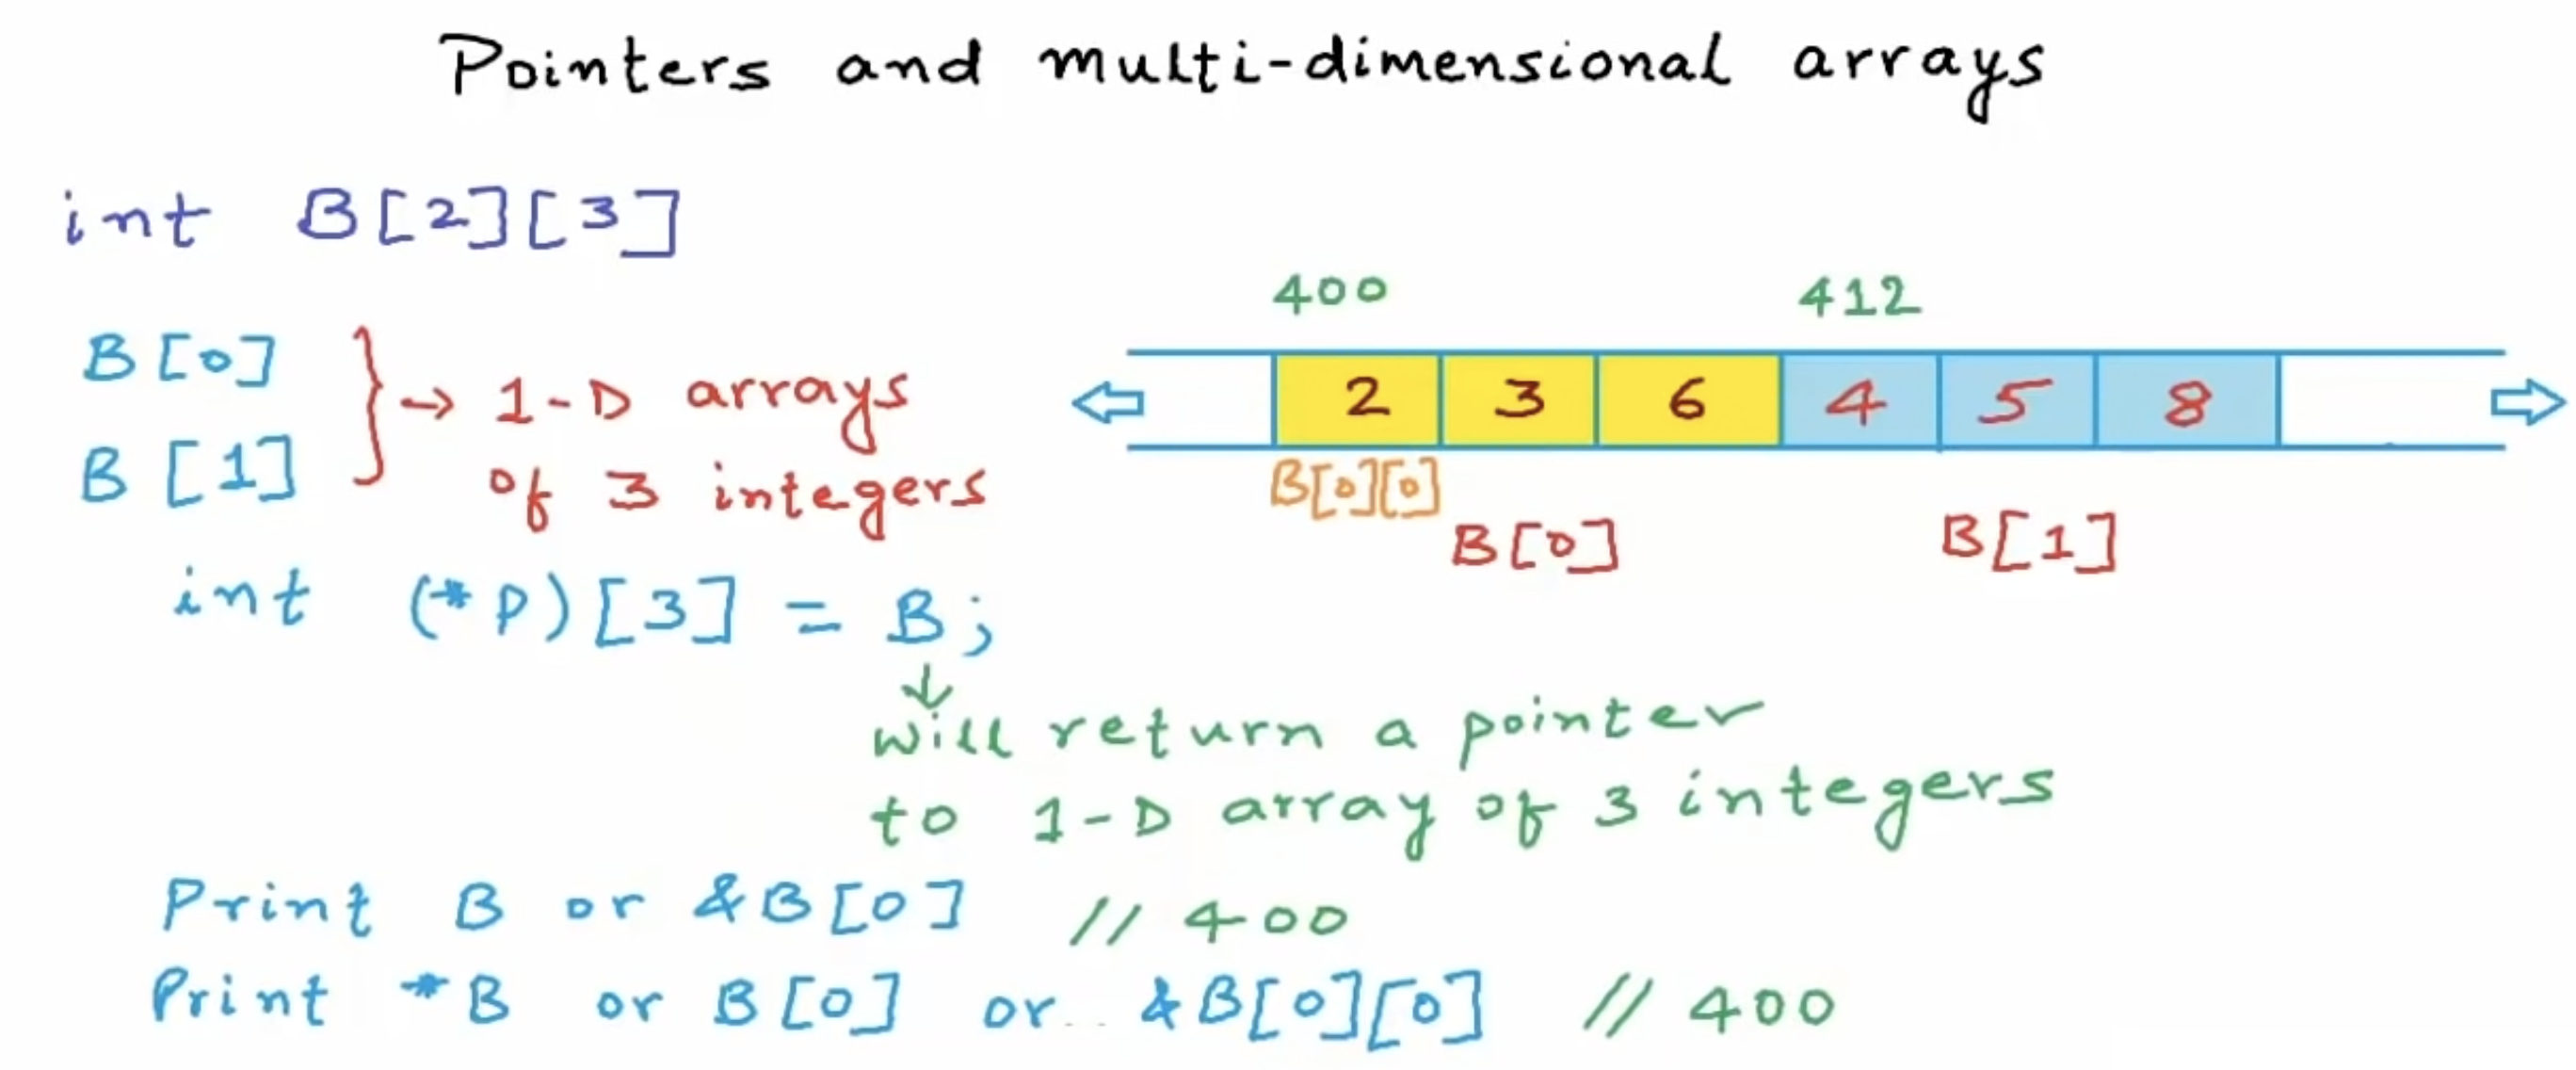 Pointers and multi-dimensional arrays
int B[2][3]
400 412
B[0]
B[1]
} → 1-D arrays
of 3 integers
2 3 6 4 5 8
B[0][0]
B[0] B[1]
int (*P)[3] = B;
↓
will return a pointer
to 1-D array of 3 integers
Print B or &B[0] // 400
Print *B or B[0] or &B[0][0] // 400